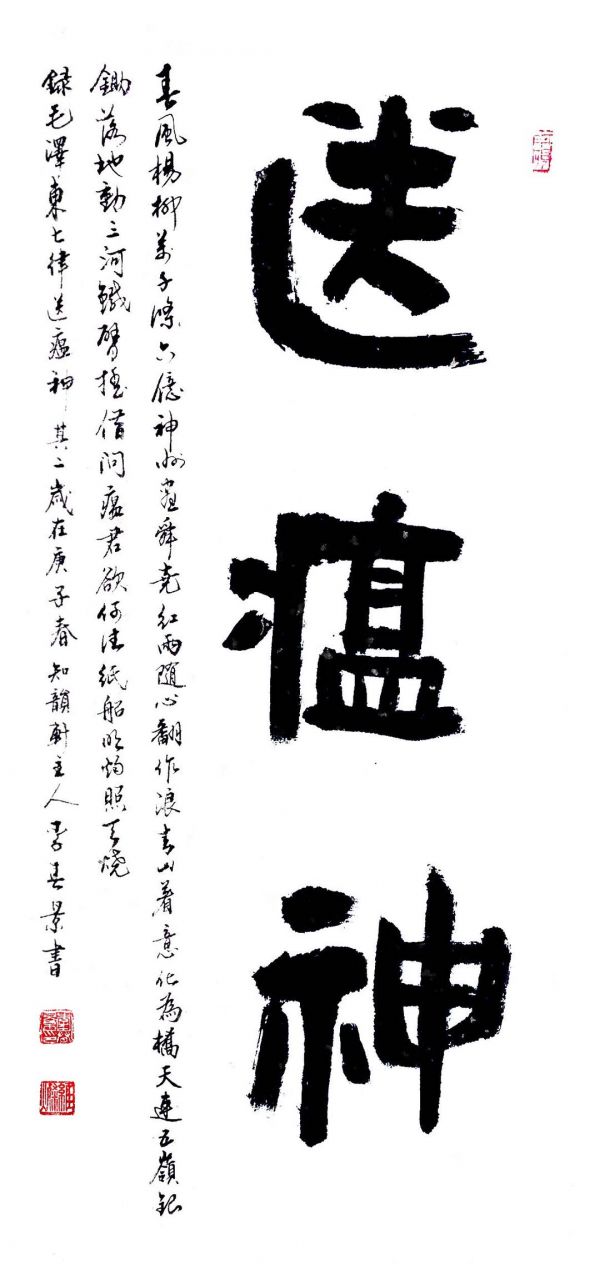 送瘟神
春風楊柳萬千條六億神州盡舜尧紅雨隨心翻作浪青山着意化為橋天連五嶺銀
鋤落地動三河鐵臂搖借問瘟君欲何往紙船明烛照天烧
録毛澤東七律送瘟神其二歲在庚子春知韻軒主人李景書